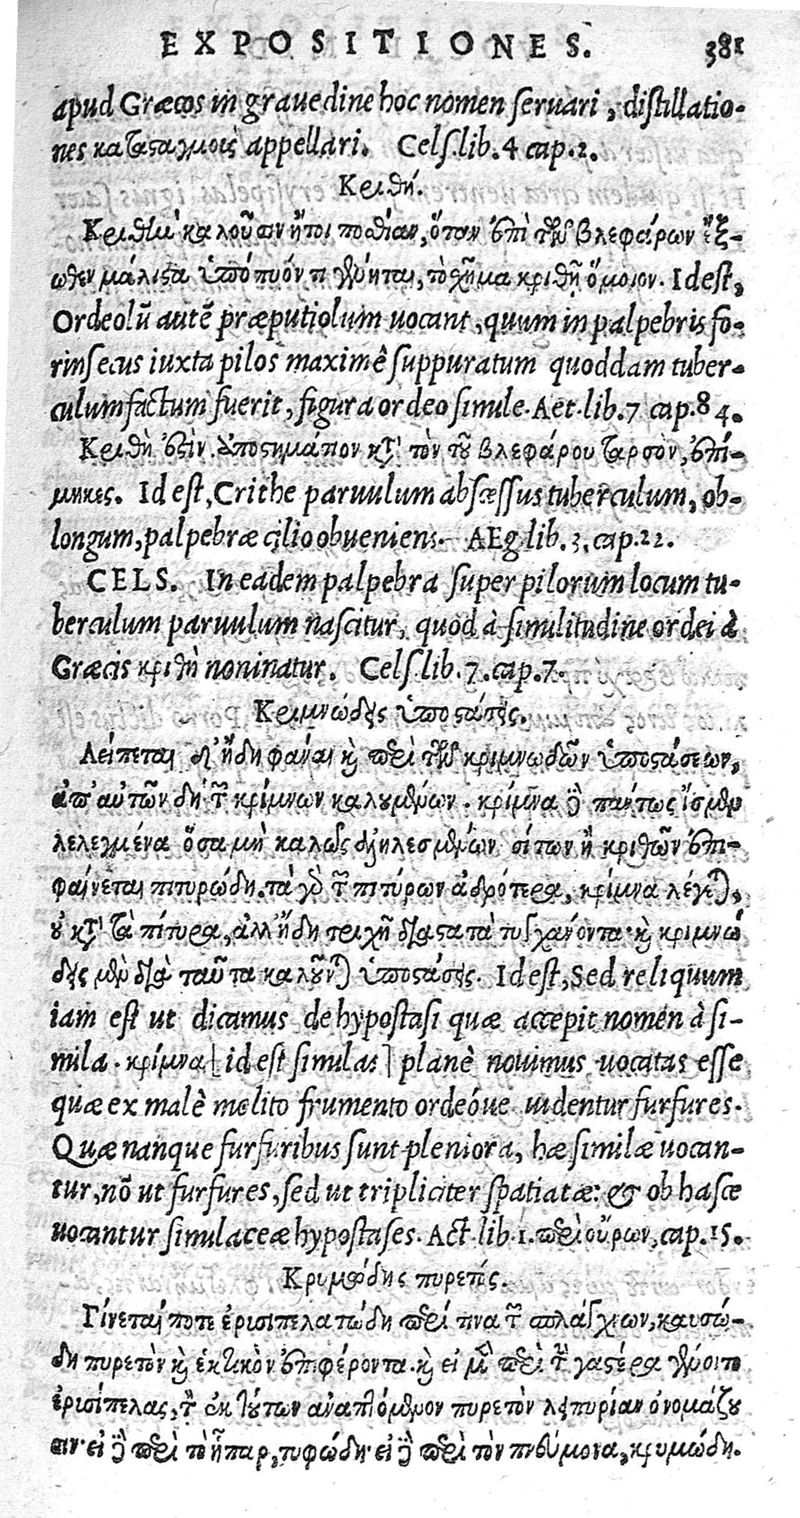 EXPOSITIONES. 381
apud Græcos in grauedine hoc nomen seruari, distillatio-
nes καταςαγμοὺς appellari. Cels.lib.4 cap.2.
Κριθή.
Κριθίω καλοῦσιν ἤτοι ποσθίαν, ὅταν ἐπὶ τῶν βλεφάρων ἔξ-
ωθεν μάλιςα ὑπόπυόν τι γένηται, τὸ χῆμα κριθῇ ὅμοιον. Id est,
Ordeolū autē præputiolum uocant, quum in palpebris fo-
rinsecus iuxta pilos maximè suppuratum quoddam tuber-
culum factum fuerit, figura ordeo simile. Aet.lib.7 cap.84.
Κριθὴ ἐςὶν ἀποςημάτιον κτ τὸν τοῦ βλεφάρου ταρσὸν, ἐπί-
μηκες. Id est, Crithe paruulum abscessus tuberculum, ob-
longum, palpebræ cilio obueniens. AEg.lib.3.cap.22.
CELS. In eadem palpebra super pilorum locum tu-
berculum paruulum nascitur, quod à similitudine ordei à
Græcis κριθὴ nominatur. Cels.lib.7.cap.7.
Κριμνώδης ὑποςάσης.
Λείπεται δ' ἤδη φάναι καὶ περὶ τῶν κριμνωδῶν ὑποςάσεων,
ἀπ' αὐτῶν δὴ τῶν κρίμνων καλουμένων. κρίμνα δὲ πάντως ἴσμεν
λελεγμένα ὅσα μὴ καλῶς ἀληλεσμένων σίτων ἢ κριθῶν ἐπι-
φαίνεται πιτυρώδη. τὰ γὰρ τῶν πιτύρων ἁδρότερα, κρίμνα λέγεται,
οὐ κτ τὰ πίτυρα, ἀλλ' ἤδη τριχῆ διαςατὰ τυγχάνοντα· καὶ κριμνώ
δης μὲν διὰ ταῦτα καλοῦνται ὑποςάσης. Id est, Sed reliquum
iam est ut dicamus de hypostasi quæ accepit nomen à si-
mila. κρίμνα [id est similas] planè nouimus uocatas esse
quæ ex malè molito frumento ordeóue uidentur furfures.
Quæ nanque furfuribus sunt pleniora, hæ similæ uocan-
tur, nō ut furfures, sed ut tripliciter spatiatæ: & ob hasce
uocantur simulaceæ hypostases. Act.lib.1. περὶ οὔρων, cap.15.
Κρυμώδης πυρετός.
Γίνεται ποτε ἐρισιπελατώδη περί τινα τῶν σπλάγχνων, καυσώ-
δη πυρετὸν καὶ ἑκτικὸν ἐπιφέροντα. καὶ εἰ μὲν περὶ τὴν γαςέρα γένοιτο
ἐρισίπελας, τὸν ἐκ τούτων ἀναπτόμενον πυρετὸν λιπυρίαν ὀνομάζου
σιν· εἰ δὲ περὶ τὸ ἧπαρ, τυφώδη· εἰ δὲ περὶ τὸν πνεύμονα, κρυμώδη.